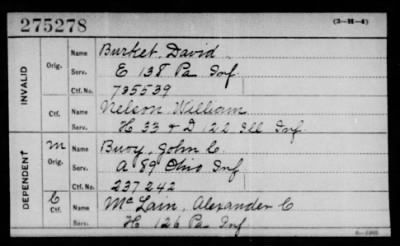 275278
(3-H-4)
INVALID
Orig.
Name Burket, David
Serv. E 138 Pa Inf.
Ctf. No. 735539
Ctf.
Name Nelson, William
Serv. H 33 & D 122 Ill Inf.
DEPENDENT
M
Orig.
Name Buoy, John C.
Serv. A 89 Ohio Inf
Ctf. No. 237242
C
Ctf.
Name McLain, Alexander C
Serv. H 126 Pa Inf